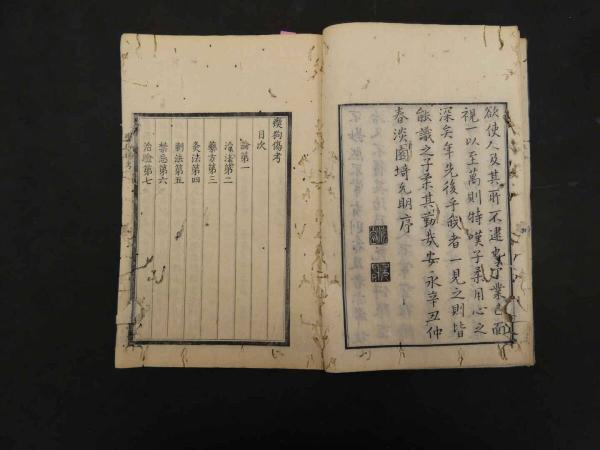 欲使人及其所不逮也子業已面
視一以至萬則特嘆子柔用心之
深矣年先後乎我者一見之則皆
能識之子柔其勤哉安永辛丑仲
春淡園埼允明序
瘈狗傷考
目次
論第一
治法第二
藥方第三
灸法第四
刺法第五
禁忌第六
治驗第七